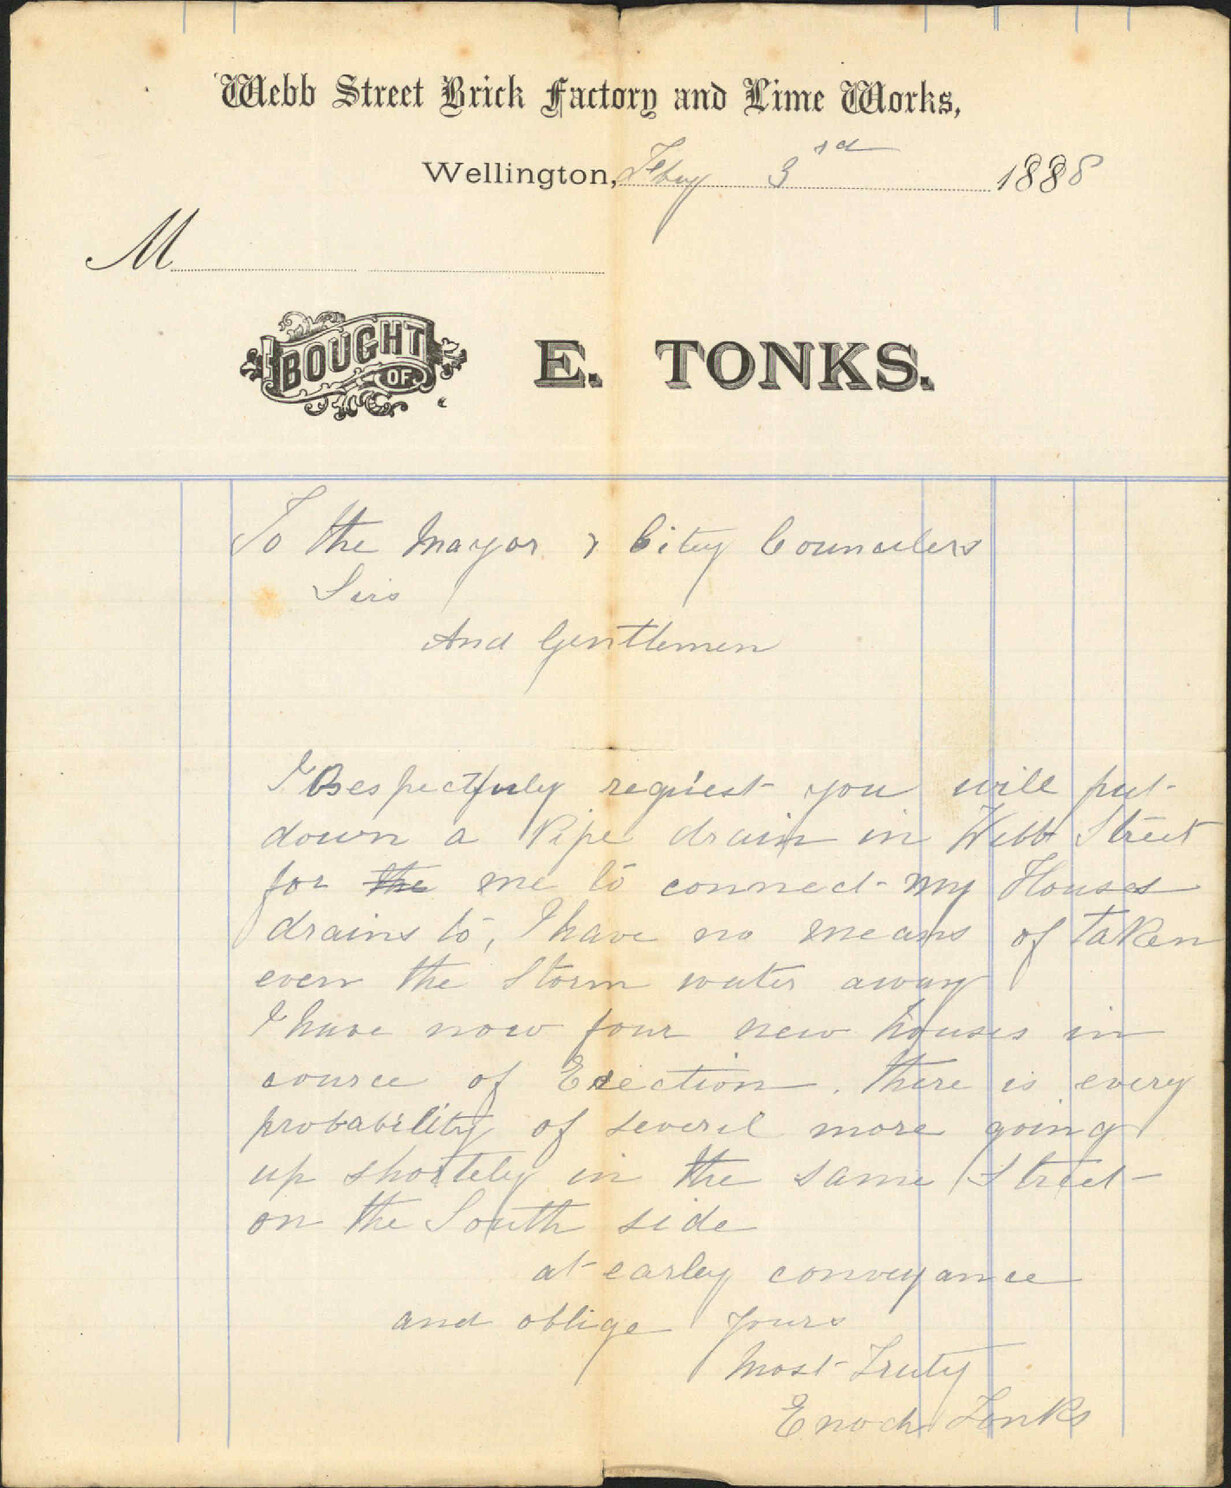 Webb Street Brick Factory and Lime Works,
Wellington, Feby 3rd 1888
M
BOUGHT OF E. TONKS.
To the Mayor & City Councilers
Sirs
And Gentlemen
I Respectfuly request you will put
down a Pipe drain in Webb Street
for the me to connect my Houses
drains to, I have no means of taken
even the Storm water away
I have now four new houses in
cource of Erection. there is every
probability of severel more going
up shortely in the same Street
on the South side
at earley conveyance
and oblige yours
Most Truly
Enoch Tonks